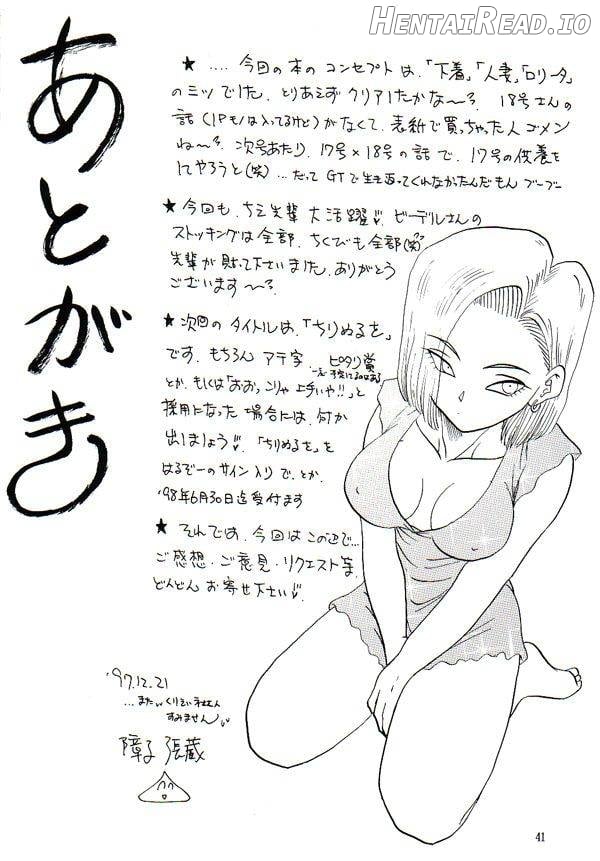 HENTAIREAD.IO
あとがき
★ .... 今回の本のコンセプトは、「下着」「人妻」「ロリータ」
の三ツでした。とりあえずクリアしたかな〜?。18号さんの
話(1Pモノは入ってるけど)がなくて、表紙で買っちゃった人ゴメン
ね〜?。次号あたり、17号×18号の話で、17号の供養を
してやろうと(笑)...だってGTで生き返ってくれなかったんだもんブーブー
★今回も、ちえ先輩大活躍。ビーデルさんの
ストッキングは全部、ちくびも全部(笑)
先輩が貼って下さいました。ありがとう
ございます〜?
★次回のタイトルは、「ちりぬるを」
です。もちろんアテ字、ピタリ賞
とか、もしくは「おおっこりゃ上手いや!!」と
採用になった場合には、何か
出しましょう。「ちりぬるを」を
はるぞーのサイン入りで、とか。
'98年6月30日迄受付ます
★それでは、今回はこの辺で...
ご感想・ご意見・リクエスト等、
どんどんお寄せ下さい
'97.12.21
...また
すみません
障子張蔵
41